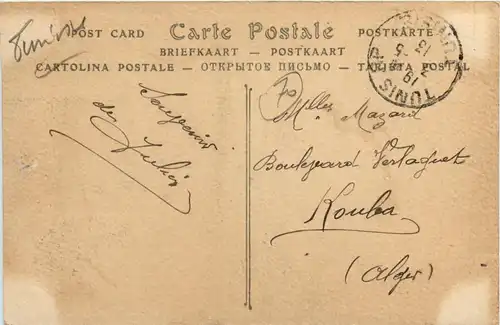 Tunisie
POST CARD Carte Postale POSTKARTE
BRIEFKAART — POSTKAART
CARTOLINA POSTALE — ОТКРЫТОЕ ПИСЬМО — TARJETA POSTAL
TUNIS R.P.
Souvenir
de Julien
Melles Mazard
Boulevard Verlaguet
Kouba
(Alger)